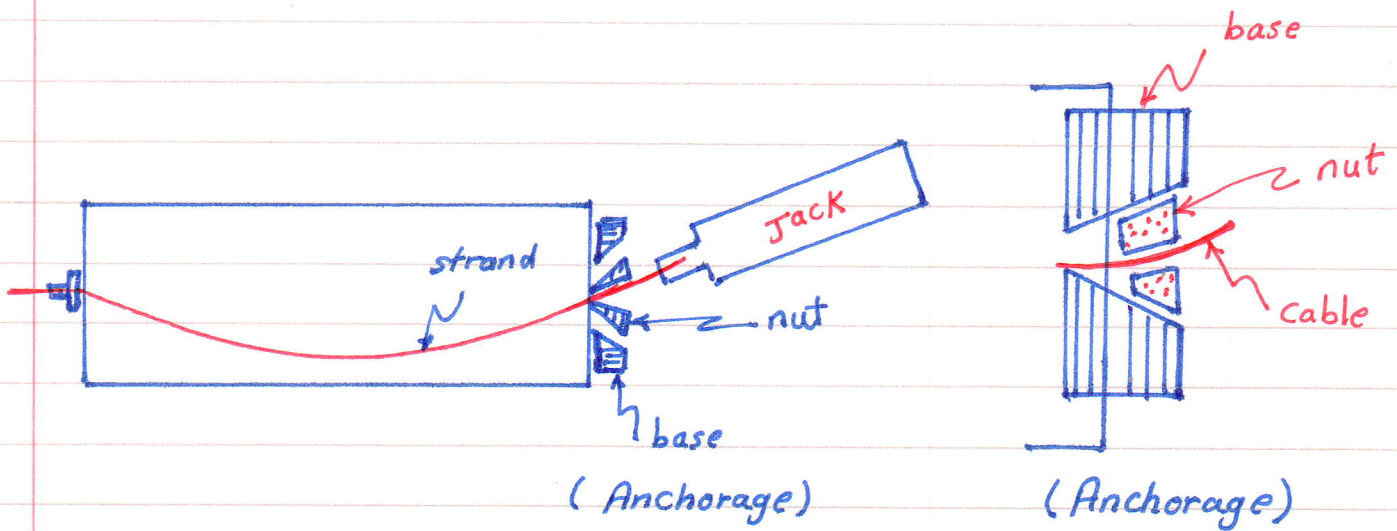 strand
Jack
nut
base
(Anchorage)
base
nut
cable
(Anchorage)